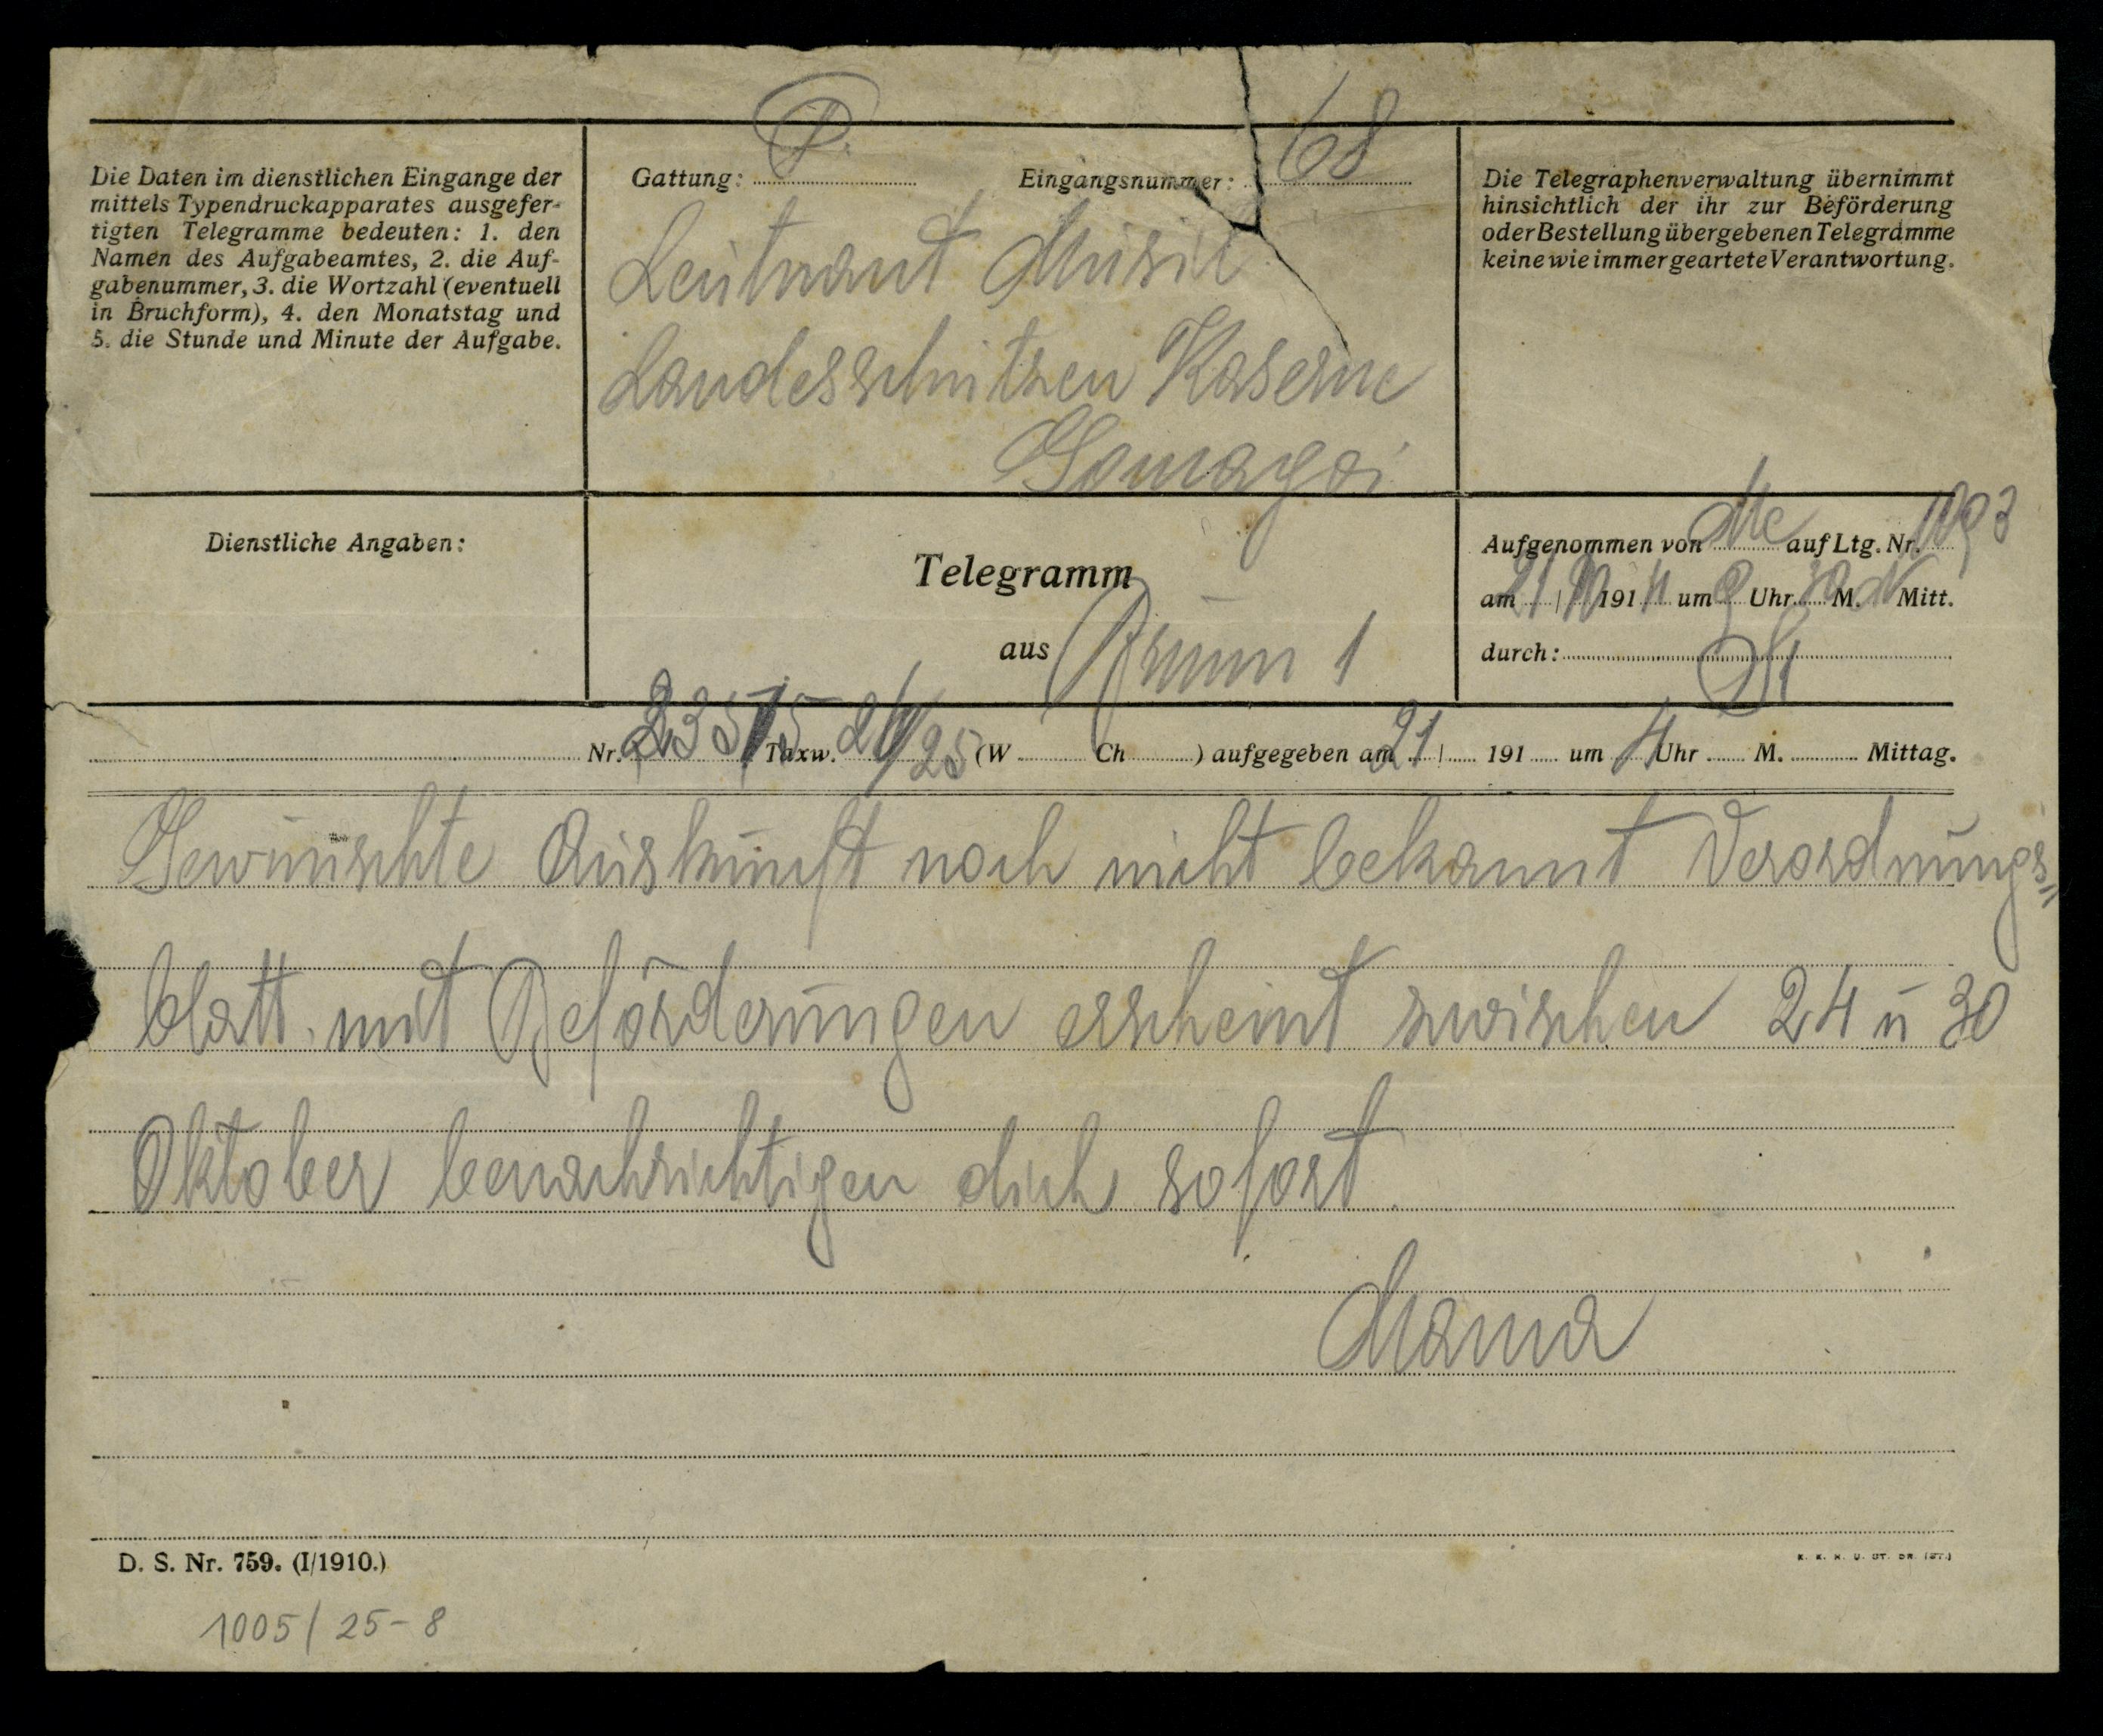 Die Daten im dienstlichen Eingange der
mittels Typendruckapparates ausgefer-
tigten Telegramme bedeuten: 1. den
Namen des Aufgabeamtes, 2. die Auf-
gabenummer, 3. die Wortzahl (eventuell
in Bruchform), 4. den Monatstag und
5. die Stunde und Minute der Aufgabe.
Gattung: P. Eingangsnummer: 68
Leutnant Musil
Landesschützen Kaserne
Gomagoi
Die Telegraphenverwaltung übernimmt
hinsichtlich der ihr zur Beförderung
oder Bestellung übergebenen Telegramme
keine wie immer geartete Verantwortung.
Dienstliche Angaben:
Telegramm
aus Brünn 1
Aufgenommen von Me auf Ltg. Nr.
am 21 | 10 191 4 um Uhr M. Mitt.
durch:
Nr. Taxw. (W Ch ) aufgegeben am 21 | 191 um 4 Uhr M. Mittag.
Gewünschte Auskunft noch nicht bekannt Verordnungs=
blatt mit Beförderungen erscheint zwischen 24 u 30
Oktober benachrichtigen dich sofort.
Mama
D. S. Nr. 759. (I/1910.)
K. K. H. U. ST. DR. (ST.)
1005/25-8